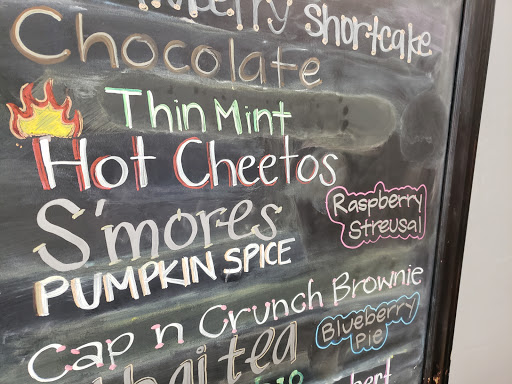 shortcake
Chocolate
Thin Mint
Hot Cheetos
S'mores
Raspberry
Streusal
PUMPKIN SPICE
Cap n Crunch Brownie
Blueberry
Pie
Thai tea